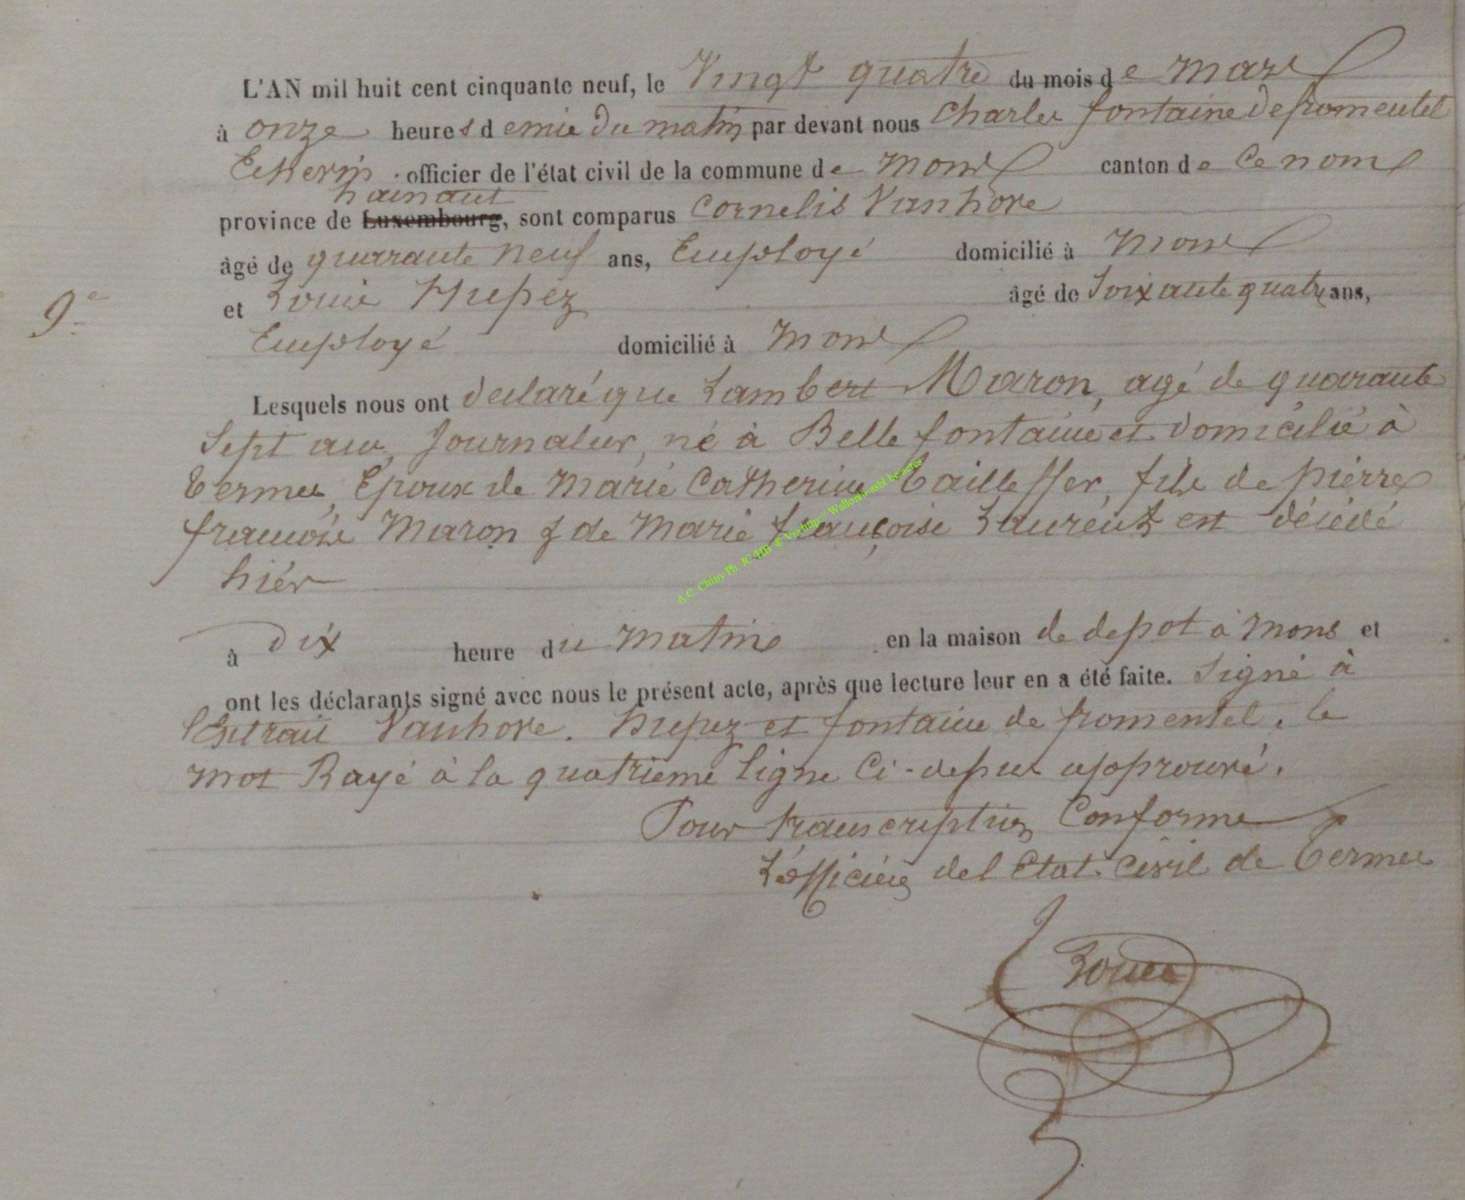 L'AN mil huit cent cinquante neuf, le Vingt quatre du mois de Mars
à onze heures demie du matin par devant nous Charles fontaine defromentel
Echevin officier de l'état civil de la commune de Mons canton de Ce nom
hainaut
province de Luxembourg, sont comparus Cornelis Vanhove
âgé de quarante neuf ans, Employé domicilié à Mons
9e
et Louis Hupez âgé de Soixante quatre ans,
Employé domicilié à Mons
Lesquels nous ont declaré que Lambert Maron, agé de quarante
Sept ans, Journalier, né à Bellefontaine et domicilié à
termes, Epoux de Marie Catherine tailleffer, fils de pierre
françois Maron & de Marie françoise Laurent est décédé
hier
à dix heure du Matin en la maison de depot à Mons et
ont les déclarants signé avec nous le présent acte, après que lecture leur en a été faite. Signé à
l'Extrait Vanhove. Hupez et fontaine de fromentel. le
mot Rayé à la quatrieme ligne Ci-dessus approuvé.
Pour transcription Conforme
L'officier del Etat. Civil de termes